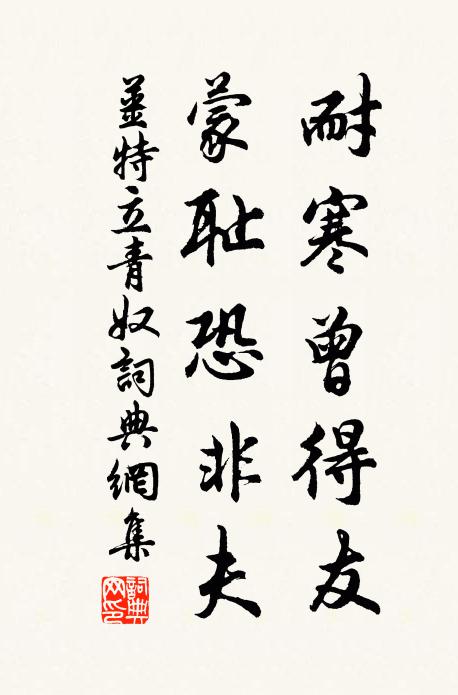 耐寒曾得友
蒙耻恐非夫
姜特立青奴詞典網集
詞典网印